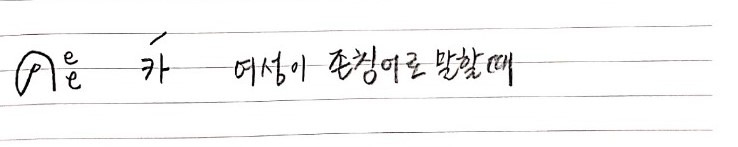 ค่ะ 카 여성이 존칭어로 말할 때